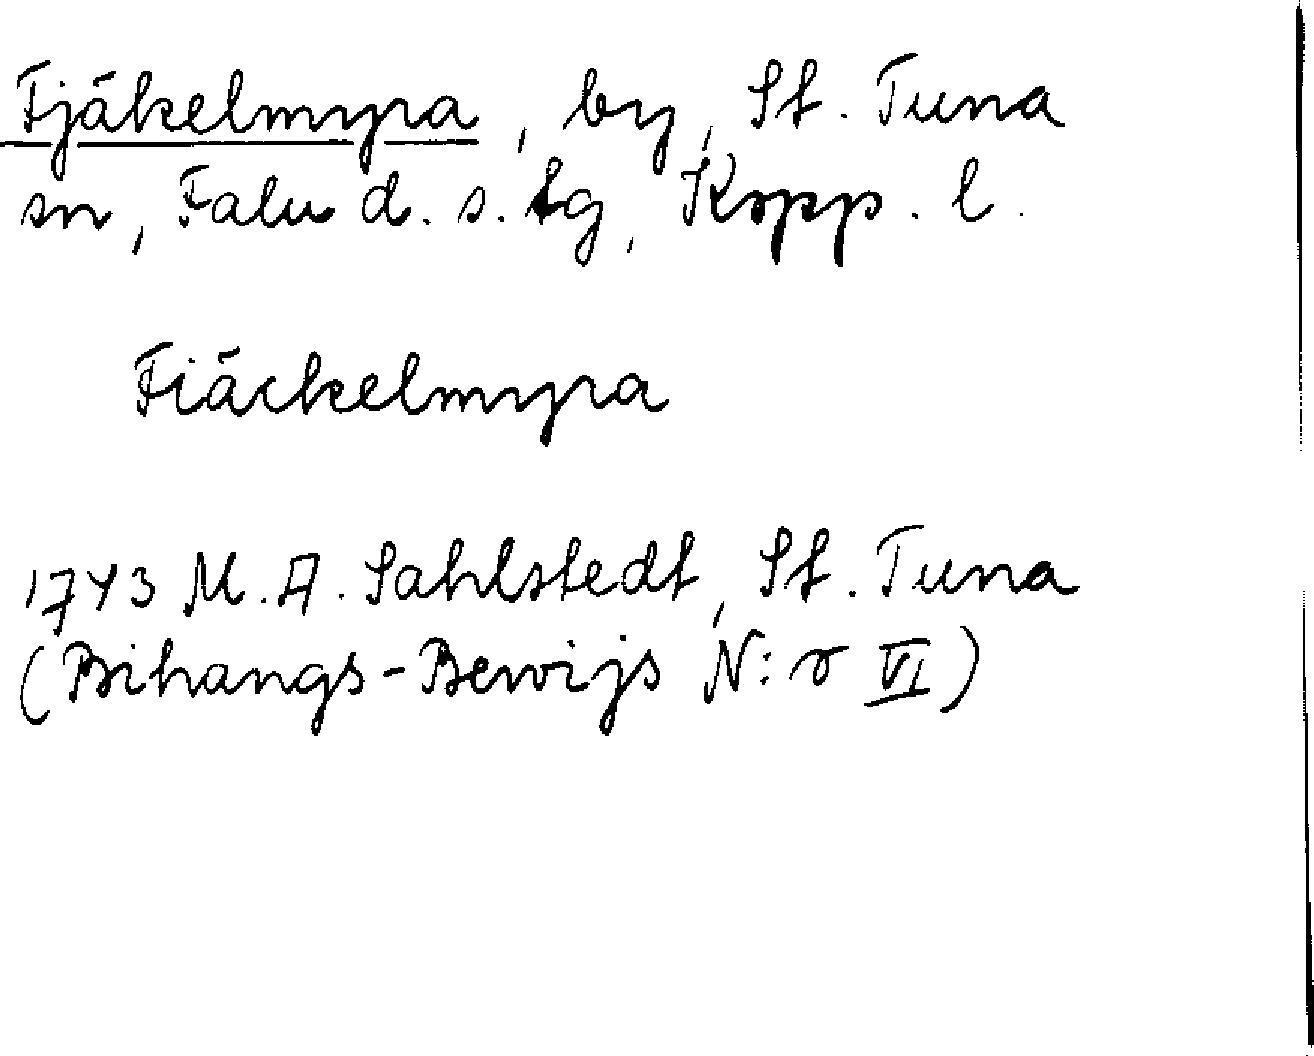 Fjäkelmyra, by, St. Tuna
sn, Falu d. s. tg, Kopp. l.
Fiäckelmyra
1743 M. A. Sahlstedt, St. Tuna
(Bihangs-Bewijs N:r VI)